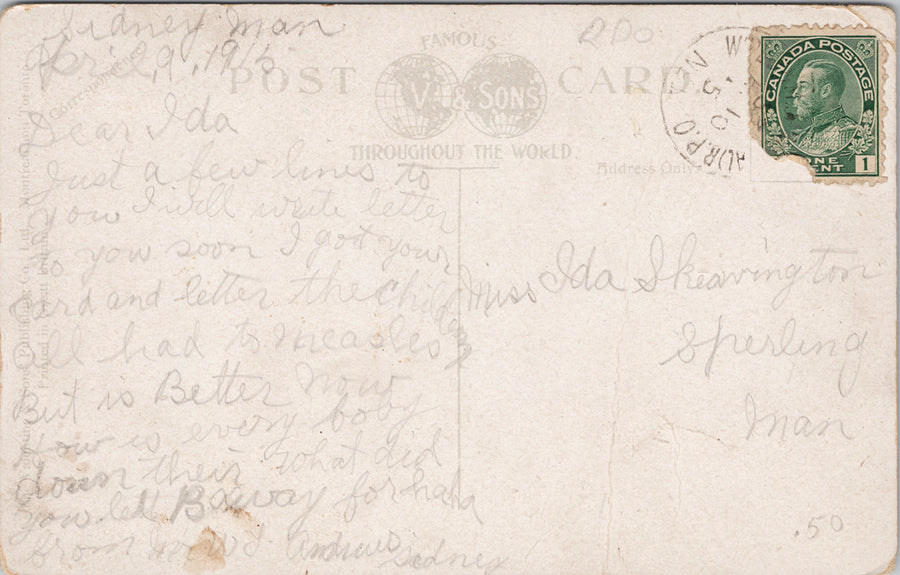 Sidney Man
April, 9, 1915
Correspondence
Dear Ida
Just a few lines to
you I will write letter
to you soon I got your
card and letter the children
all had to measles
But is Better now
how is every boby
down their what did
you let B away for
from Mrs W Andrews Sidney
FAMOUS
POST CARD
V. & SONS
THROUGHOUT THE WORLD
Address Only
CANADA POSTAGE
ONE
CENT 1
Miss Ida Skeavington
Sperling
Man
.50